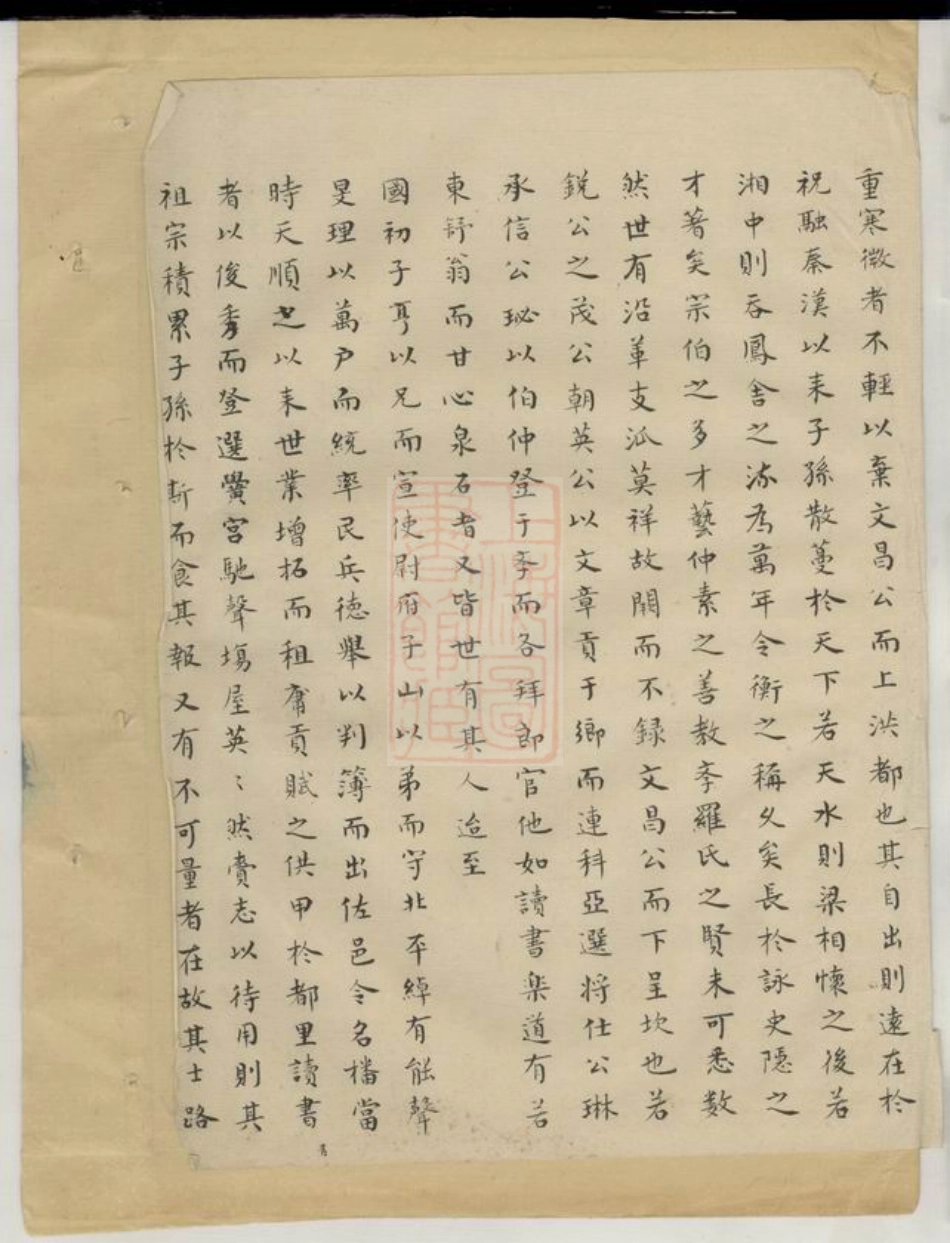 重寒微者不輕以棄文昌公而上洪都也其自出則遠在於
祝融秦漢以来子孫散蔓於天下若天水則梁相懷之後若
湘中則吞鳳舍之流為萬年令衡之稱乆矣長於詠史隱之
才著矣宗伯之多才藝仲素之善教李羅氏之賢未可悉數
然世有沿革支派莫祥故闕而不録文昌公而下呈坎也若
鋭公之茂公朝英公以文章貢于鄉而連科亞選将仕公琳
承信公珌以伯仲登于季而各拜郎官他如讀書楽道有若
東舒翁而甘心泉石者又皆世有其人迨至
國初子亨以兄而宣使尉府子山以弟而守北平綽有能聲
旻理以萬户而統率民兵德舉以判簿而出佐邑令名播當
時天順之以来世業增拓而租庸貢賦之供甲於都里讀書
者以俊秀而登選黌宮馳聲塲屋英〻然賫志以待用則其
祖宗積累子孫於斯而食其報又有不可量者在故其士路
上海圖書館藏